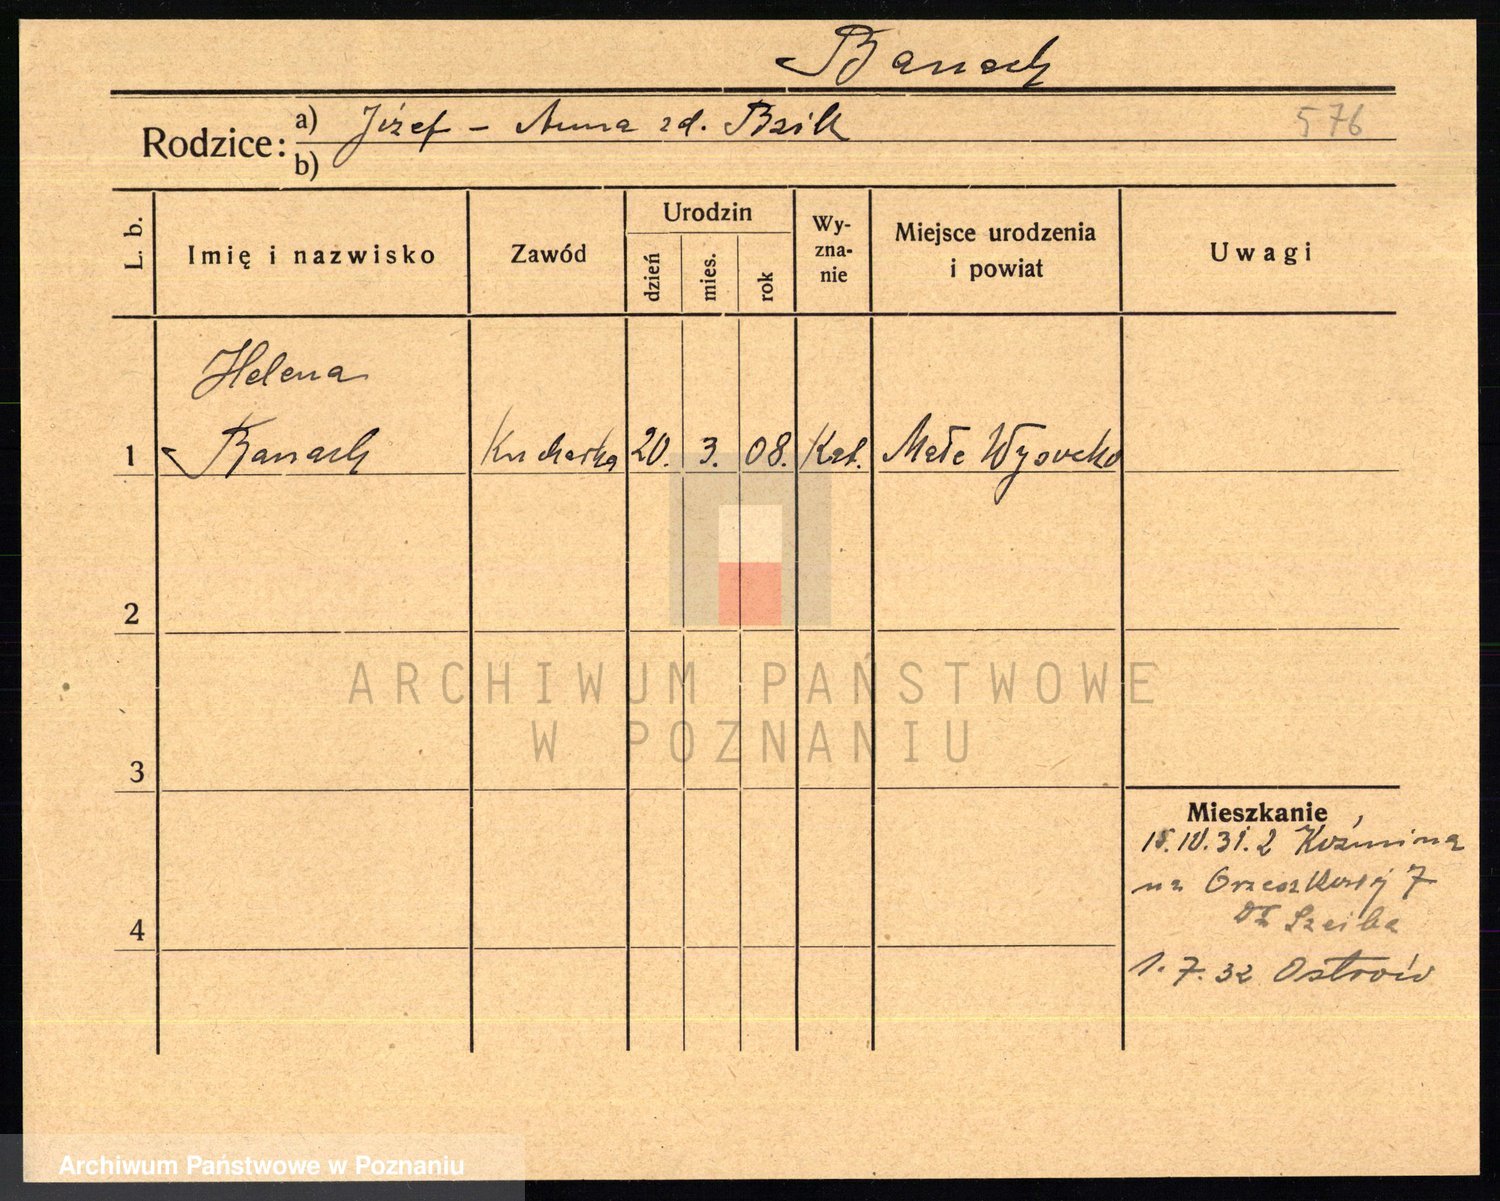 Banach
Rodzice: a) Józef – Anna zd. Bzik 576
b)
L. b. Imię i nazwisko Zawód Urodzin dzień mies. rok Wy-zna-nie Miejsce urodzenia i powiat Uwagi
Helena
1 Banach Kucharka 20. 3. 08. Kat. Małe Wysocko
2
ARCHIWUM PAŃSTWOWE
W POZNANIU
3
Mieszkanie
15.IV.31. z Koźmina
na Orzeszkowej 7
Szeiba
4
1.7.32 Ostrów
Archiwum Państwowe w Poznaniu